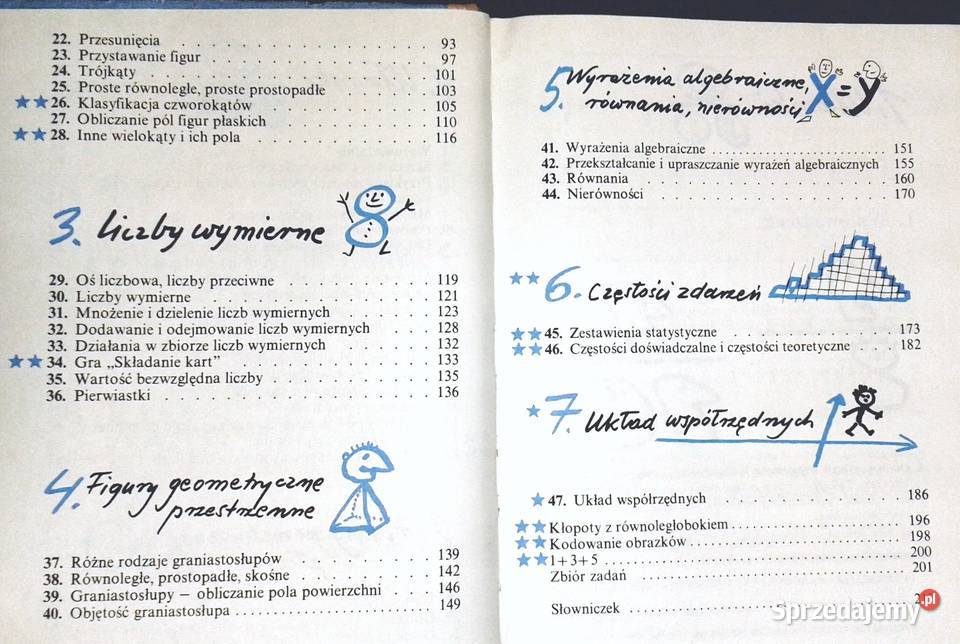 22. Przesunięcia . . . . . . . . . . . . . . . . 93
23. Przystawanie figur . . . . . . . . . . . . . 97
24. Trójkąty . . . . . . . . . . . . . . . . . . 101
25. Proste równoległe, proste prostopadłe . . . . . . 103
★★ 26. Klasyfikacja czworokątów . . . . . . . . . . 105
27. Obliczanie pól figur płaskich . . . . . . . . . 110
★★ 28. Inne wielokąty i ich pola . . . . . . . . . . 116
3. Liczby wymierne
29. Oś liczbowa, liczby przeciwne . . . . . . . . . 119
30. Liczby wymierne . . . . . . . . . . . . . . 121
31. Mnożenie i dzielenie liczb wymiernych . . . . . . 123
32. Dodawanie i odejmowanie liczb wymiernych . . . 128
33. Działania w zbiorze liczb wymiernych . . . . . . 132
★★ 34. Gra „Składanie kart" . . . . . . . . . . . . 133
35. Wartość bezwzględna liczby . . . . . . . . . . 135
36. Pierwiastki . . . . . . . . . . . . . . . . . 136
4. Figury geometryczne
przestrzenne
37. Różne rodzaje graniastosłupów . . . . . . . . . 139
38. Równoległe, prostopadłe, skośne . . . . . . . . 142
39. Graniastosłupy – obliczanie pola powierzchni . . . 146
40. Objętość graniastosłupa . . . . . . . . . . . . 149
5. Wyrażenia algebraiczne,
równania, nierówności x = y
41. Wyrażenia algebraiczne . . . . . . . . . . . . 151
42. Przekształcanie i upraszczanie wyrażeń algebraicznych 155
43. Równania . . . . . . . . . . . . . . . . . . 160
44. Nierówności . . . . . . . . . . . . . . . . . 170
★★ 6. Częstości zdarzeń
★★ 45. Zestawienia statystyczne . . . . . . . . . . 173
★★ 46. Częstości doświadczalne i częstości teoretyczne . . . 182
★ 7. Układ współrzędnych
★ 47. Układ współrzędnych . . . . . . . . . . . . 186
★★ Kłopoty z równoległobokiem . . . . . . . . . . 196
★★ Kodowanie obrazków . . . . . . . . . . . . . 198
★★ 1+3+5 . . . . . . . . . . . . . . . . . . . 200
Zbiór zadań . . . . . . . . . . . . . . . . . . 201
Słowniczek . . . . . . . . . . . . . . . . . .
Sprzedajemy.pl